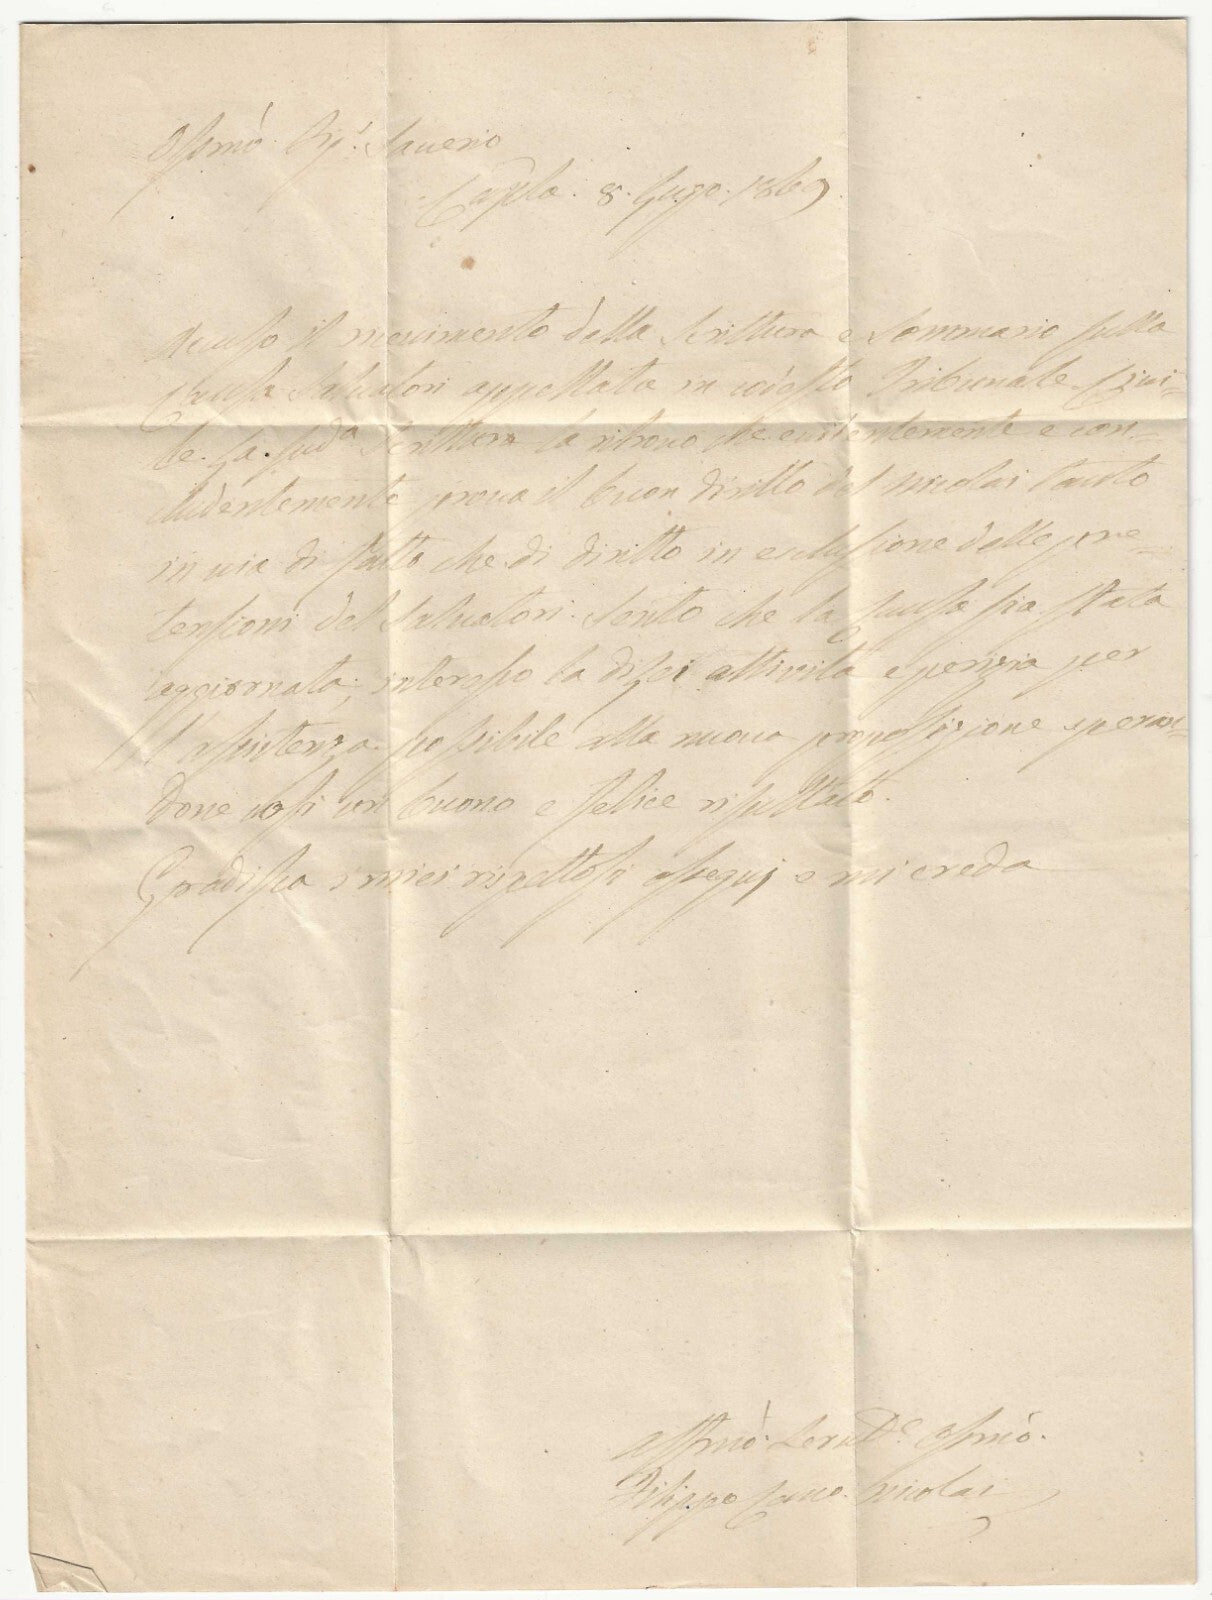 Ossmo Sigr. Saverio
8. Lugo. 1869
Accuso il ricevimento della Scrittura e Sommario sulla
Causa Salvatori appellata in codesto Tribunale Civi-
le. La suda. Scrittura la ritrovo che evidentemente e con-
cludentemente prova il buon diritto del Nicolai tanto
in via di fatto che di diritto in esclusione delle pre-
tensioni del Salvatori. Sento che la Causa sia stata
aggiornata; interesso la di Lei attività e perizia per
l'assistenza possibile alla nuova proposizione speran-
done così un buono e felice risultato.
Gradisca i miei rispettosi ossequj e mi creda
Affmo. Servde. Ossmo.
Filippo Canco. Nicolai